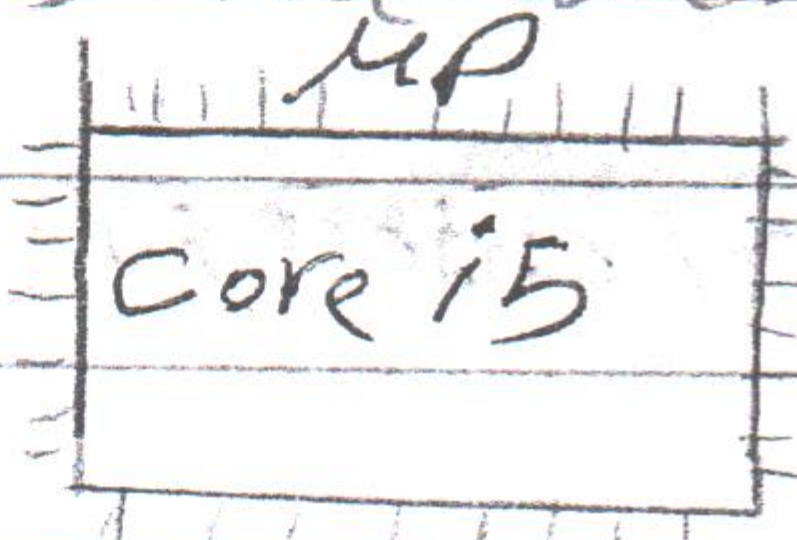 μP
Core i5